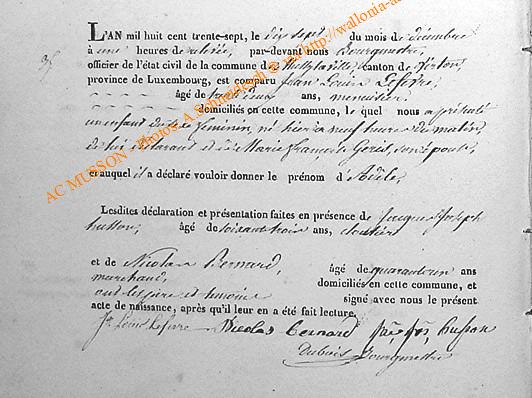 L'AN mil huit cent trente-sept, le dix sept du mois de décembre
à une heures de relevée, par-devant nous Bourgmestre,
officier de l'état civil de la commune de canton de Virton,
province de Luxembourg, est comparu Jean Louis Lefevre,
âgé de trente deux ans, menuisier,
domiciliés en cette commune, le quel nous a présenté
un enfant du sexe feminin, né hier a neuf heure du matin,
de lui déclarant et de Marie françoise son épouse
et auquel il a déclaré vouloir donner le prénom d'Adèle,
Lesdites déclaration et présentation faites en présence de Jacques Joseph
husson, âgé de soixante trois ans, cloutier
et de Nicolas Bernard, âgé de quarante un ans
marchand, domiciliés en cette commune, et
ont les père et temoins signé avec nous le présent
acte de naissance, après qu'il leur en a été fait lecture.
Jn Louis Lefevre Nicolas Bernard husson
Dubois Bourgmestre
AC MUSSON - Photos: A.Schmickrath @ http://wallonia-as